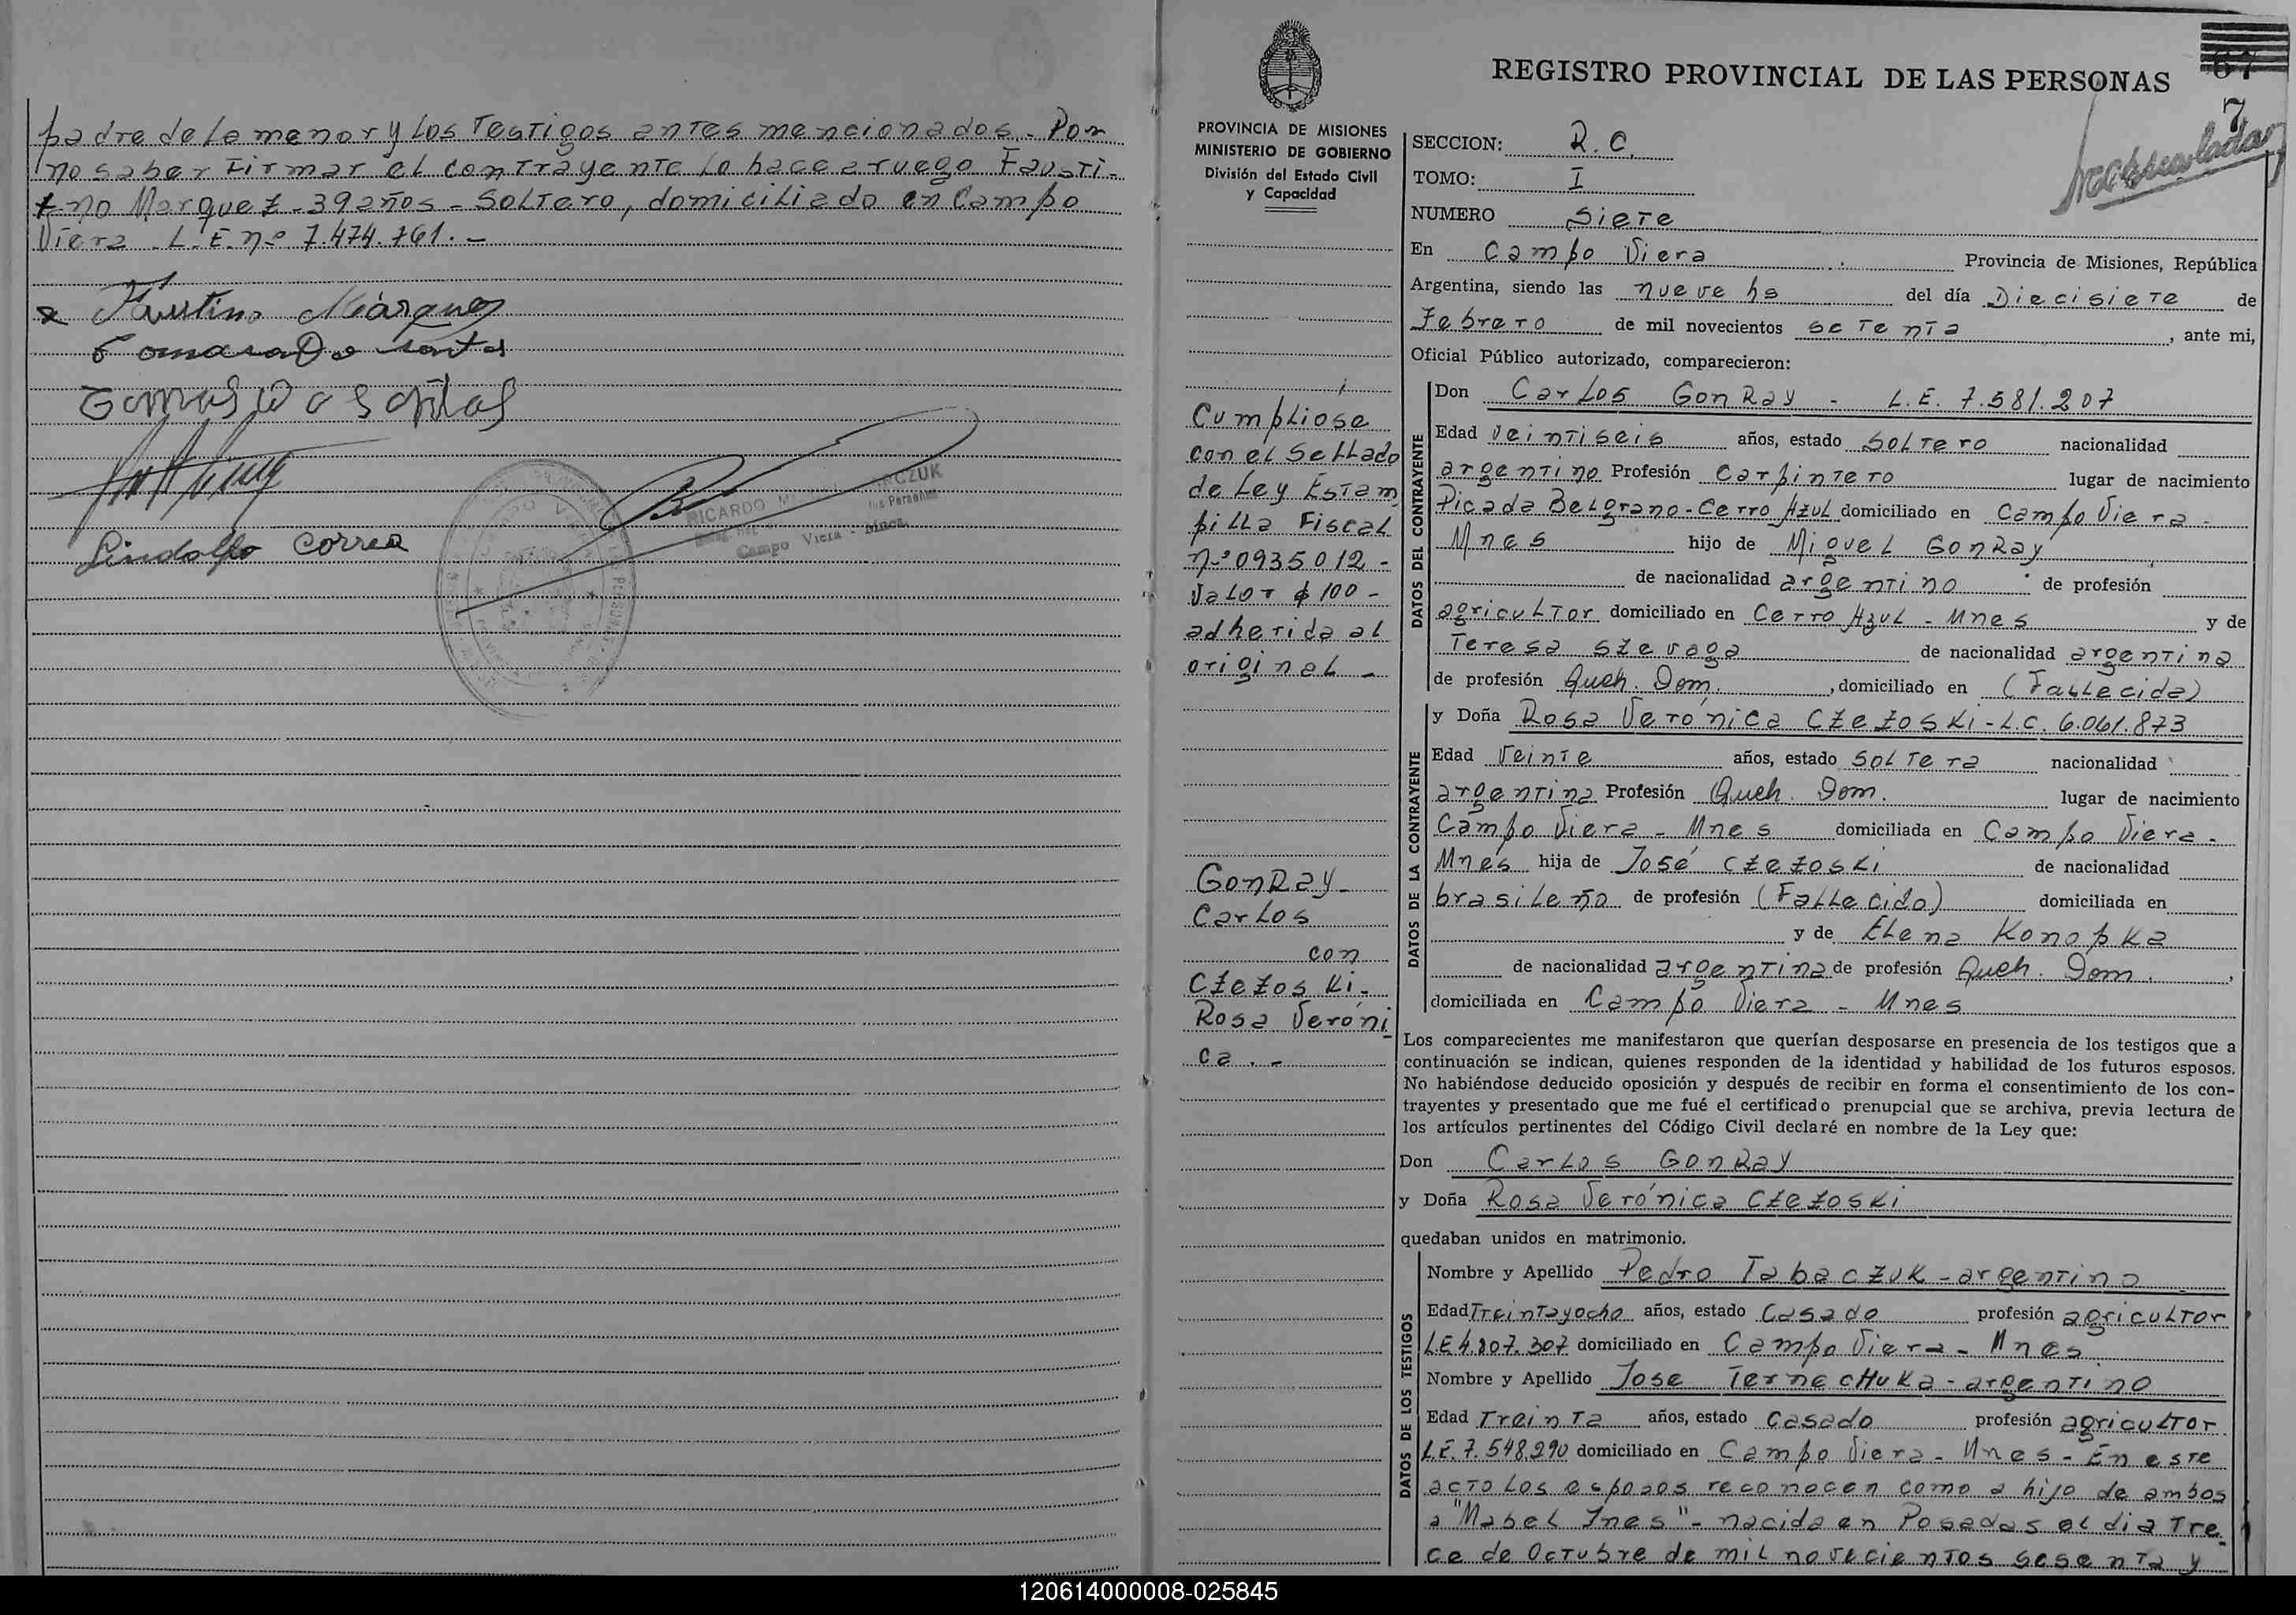 padre de la menor y los Testigos antes mencionados. Por
no saber Firmar el contrayente lo hace a ruego Fausti-
no Marquez - 39 años - Soltero, domiciliado en Campo
Viera - L.E. nº 7.474.761.-
Faustino Márquez
Lindolfo Correa
RICARDO
Campo Viera - Mnes.
REGISTRO PROVINCIAL DE LAS PERSONAS
67
7
PROVINCIA DE MISIONES
MINISTERIO DE GOBIERNO
División del Estado Civil
y Capacidad
SECCION: R.C.
TOMO: I
NUMERO Siete
En Campo Viera Provincia de Misiones, República
Argentina, siendo las nueve hs del día Diecisiete de
Febrero de mil novecientos setenta, ante mi,
Oficial Público autorizado, comparecieron:
DATOS DEL CONTRAYENTE
Don Carlos GonRay - L.E. 7.581.207
Edad veintiseis años, estado Soltero nacionalidad
argentino Profesión Carpintero lugar de nacimiento
Picada Belgrano - Cerro Azul domiciliado en Campo Viera -
Mnes hijo de Miguel GonRay
de nacionalidad argentino de profesión
agricultor domiciliado en Cerro Azul - Mnes y de
Teresa Szevaga de nacionalidad argentina
de profesión Queh. Dom., domiciliado en (Fallecida)
DATOS DE LA CONTRAYENTE
y Doña Rosa Verónica Czezoski - L.C. 6.061.873
Edad Veinte años, estado Soltera nacionalidad
argentina Profesión Queh. Dom. lugar de nacimiento
Campo Viera - Mnes domiciliada en Campo Viera -
Mnes hija de José Czezoski de nacionalidad
brasileño de profesión (Fallecido) domiciliada en
y de Elena Konopka
de nacionalidad argentina de profesión Queh. Dom.,
domiciliada en Campo Viera - Mnes
Cumpliose
con el Sellado
de Ley Estam
pilla Fiscal
nº 0935012 -
Valor $ 100 -
adherida al
original -
GonRay -
Carlos
con
Czezoski -
Rosa Veróni
ca . -
Los comparecientes me manifestaron que querían desposarse en presencia de los testigos que a
continuación se indican, quienes responden de la identidad y habilidad de los futuros esposos.
No habiéndose deducido oposición y después de recibir en forma el consentimiento de los con-
trayentes y presentado que me fué el certificado prenupcial que se archiva, previa lectura de
los artículos pertinentes del Código Civil declaré en nombre de la Ley que:
Don Carlos GonRay
y Doña Rosa Verónica Czezoski
quedaban unidos en matrimonio.
DATOS DE LOS TESTIGOS
Nombre y Apellido Pedro Tabaczuk - argentino
Edad Treintayocho años, estado Casado profesión agricultor
L.E 4.807.307 domiciliado en Campo Viera - Mnes
Nombre y Apellido Jose Ternechuka - argentino
Edad Treinta años, estado Casado profesión agricultor
L.E. 7.548.290 domiciliado en Campo Viera - Mnes - En este
acto los esposos reconocen como a hijo de ambos
a "Mabel Ines" - nacida en Posadas el dia Tre
ce de Octubre de mil novecientos sesenta y
120614000008-025845